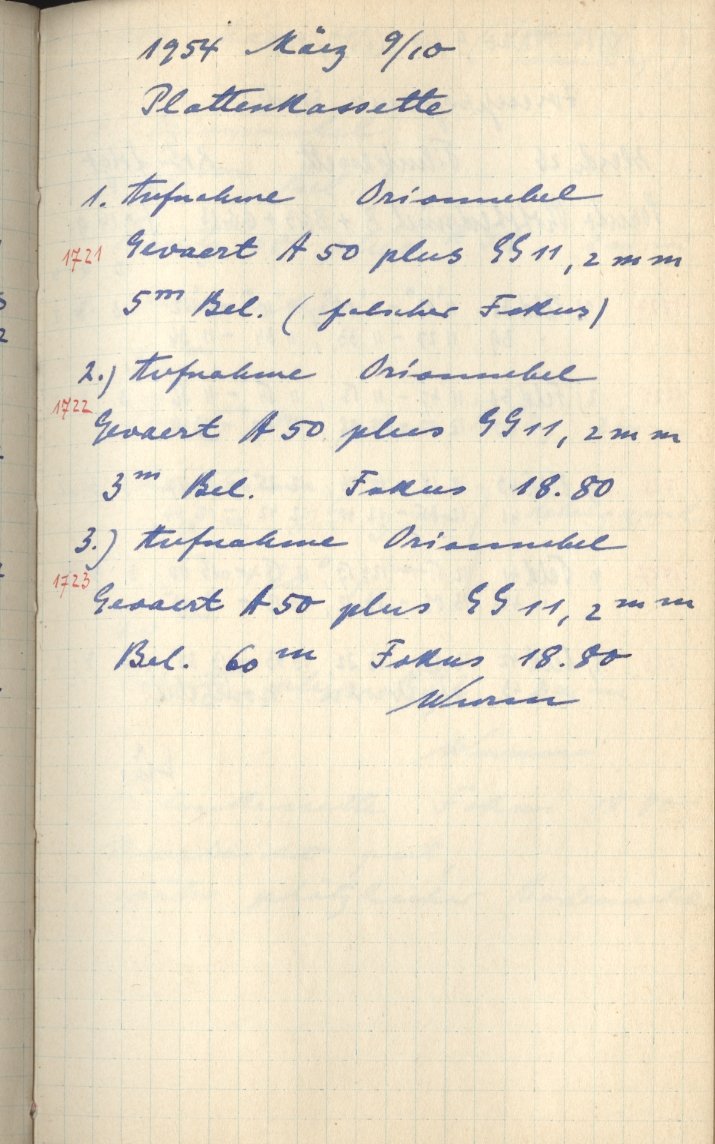 1954 März 9/10
Plattenkassette
1. Aufnahme Orionnebel
1721 Gevaert A 50 plus GG 11, 2 mm
5m Bel. (falscher Fokus)
2.) Aufnahme Orionnebel
1722
Gevaert A 50 plus GG 11, 2 mm
3m Bel. Fokus 18.80
3.) Aufnahme Orionnebel
1723
Gevaert A 50 plus GG 11, 2 mm
Bel. 60m Fokus 18.80
Wurm